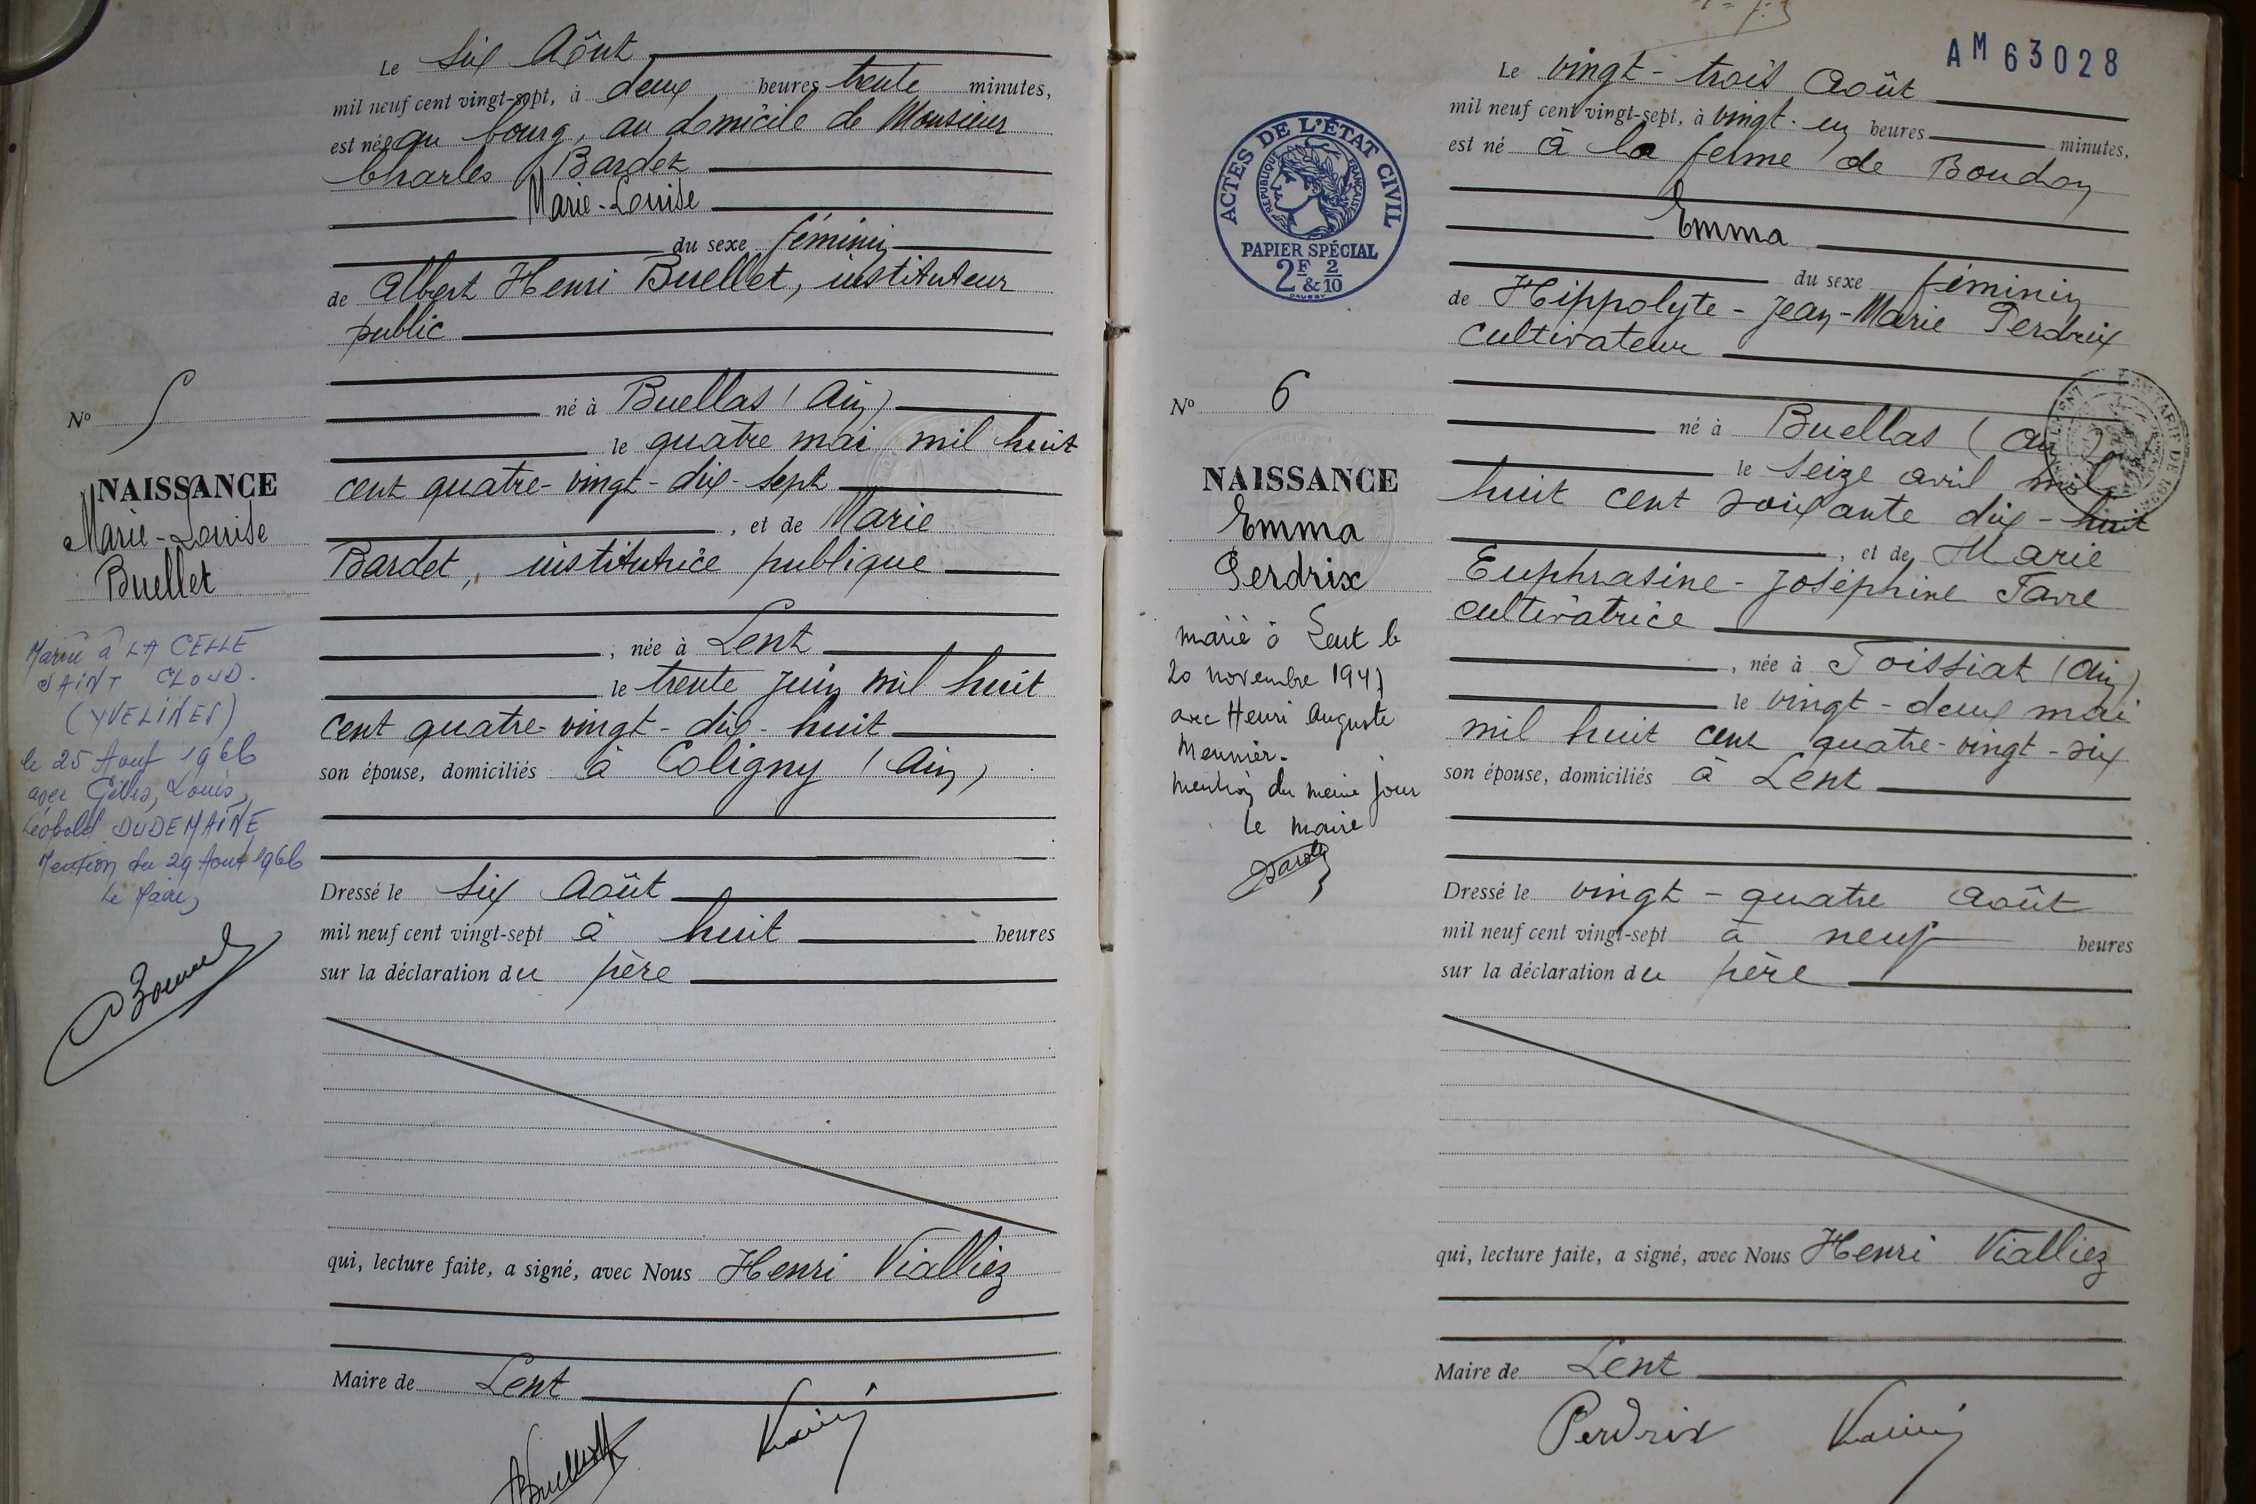 Le six Aôut
mil neuf cent vingt-sept, à deux heures trente minutes,
est née au bourg, au domicile de Monsieur
Charles Bardet
Marie-Louise
du sexe féminin
de Albert Henri Buellet, instituteur
public
né à Buellas (Ain)
le quatre mai mil huit
cent quatre-vingt-dix-sept
, et de Marie
Bardet, institutrice publique
, née à Lent
le trente Juin mil huit
cent quatre-vingt-dix-huit
son épouse, domiciliés à Coligny (Ain)
Dressé le six Août
mil neuf cent vingt-sept à huit heures
sur la déclaration du père
qui, lecture faite, a signé, avec Nous Henri Vialliez
Maire de Lent
Nº 5
NAISSANCE
Marie-Louise
Buellet
Mariée à LA CELLE
SAINT CLOUD.
(YVELINES)
le 25 Aout 1966
avec Gilles, Louis,
Léopold DUDEMAINE
Mention du 29 Aout 1966
Le Maire,
AM 63028
Le vingt-trois Août
mil neuf cent vingt-sept, à vingt-un heures minutes,
est né à la ferme de Boudon
Emma
du sexe féminin
de Hippolyte-Jean-Marie Perdrix
cultivateur
né à Buellas (Ain)
le seize avril mil
huit cent soixante dix-huit
, et de Marie
Euphrasine-Joséphine Favre
cultivatrice
, née à Toissiat (Ain)
le vingt-deux mai
mil huit cent quatre-vingt-six
son épouse, domiciliés à Lent
Dressé le vingt-quatre Août
mil neuf cent vingt-sept à neuf heures
sur la déclaration du père
qui, lecture faite, a signé, avec Nous Henri Vialliez
Maire de Lent
Perdrix
ACTES DE L'ÉTAT CIVIL
RÉPUBLIQUE FRANÇAISE
PAPIER SPÉCIAL
2F & 2/10
Nº 6
NAISSANCE
Emma
Perdrix
marié à Lent le
20 novembre 1947
avec Henri Auguste
Meunier.
Mention du même jour
Le maire